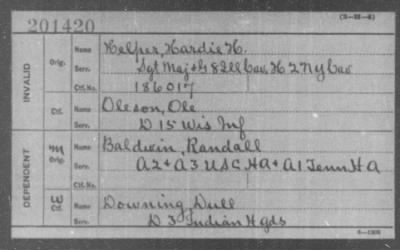 (3-22-6)
201420
INVALID
Orig.
Name Helper, Hardie H.
Serv. Sgt Maj + H 82 Ill Cav, H 2 N Y Cav
Ctf. No. 186017
Ctf.
Name Oleson, Ole
Serv. D 15 Wis Inf
DEPENDENT
M
Orig.
Name Baldwin, Randall
Serv. A 2 + A 3 U S C H A + A 1 Tenn H A
Ctf. No.
W
Ctf.
Name Downing, Dull
Serv. D 3 Indian H gds
6-1309